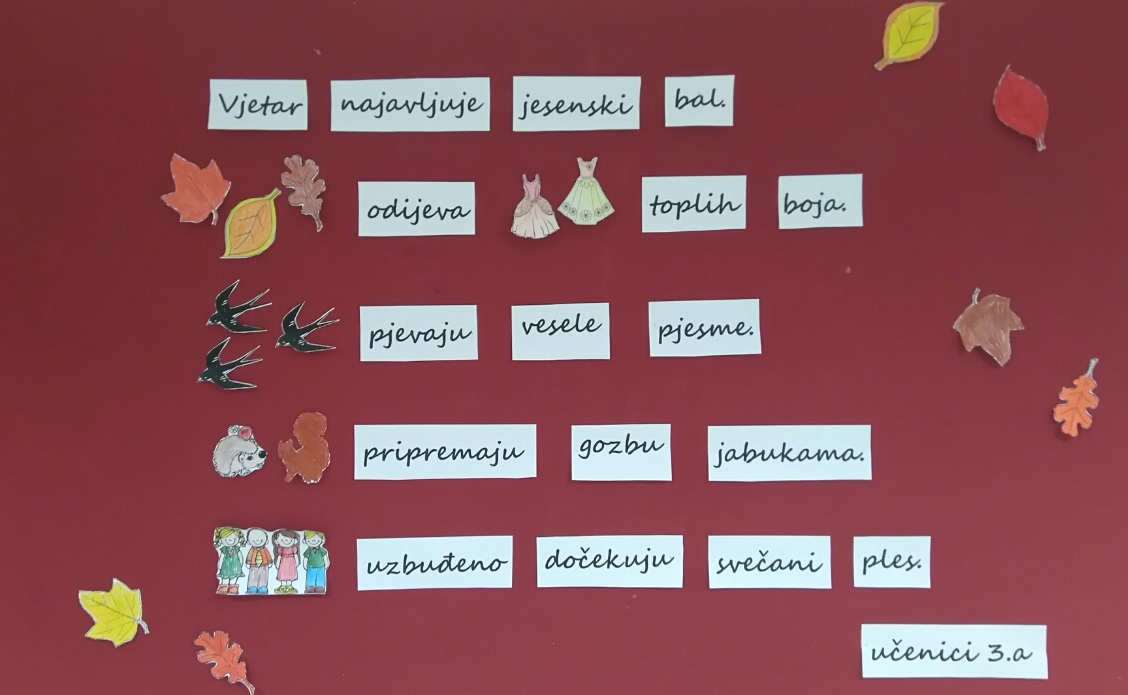 Vjetar najavljuje jesenski bal.
odijeva toplih boja.
pjevaju vesele pjesme.
pripremaju gozbu jabukama.
uzbuđeno dočekuju svečani ples.
učenici 3.a